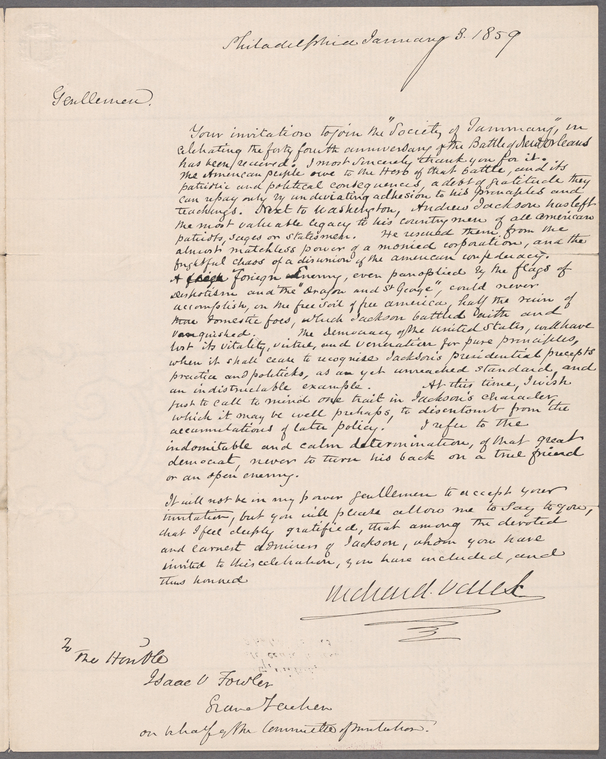 Philadelphia January 3. 1859
Gentlemen.
Your invitation to join the "Society of Tammany", in
celebrating the forty fourth anniversary of the Battle of New Orleans
has been recieved. I most sincerely thank you for it.
The American people owe to the Hero of that battle, and its
patriotic and political consequences, a debt of gratitude they
can repay only by undeviating adhesion to his principles and
teachings. Next to Washington, Andrew Jackson has left
the most valuable legacy to his countrymen of all American
patriots, sages or statesmen. He rescued them from the
almost matchless power of a monied corporation, and the
frightful chaos of a disunion of the American confederacy.
A foreign Enemy, even panoplied by the flags of
despotism and the "Dragon and St George", could never
accomplish, on the free soil of free America, half the ruin of
these domestic foes, which Jackson battled with and
vanquished. The Democracy of the United States, will have
lost its vitality, virtue, and veneration for pure principles,
when it shall cease to recognise Jackson's presidential precepts
practice and politicks, as an yet unreached standard, and
an indistructable example. At this time, I wish
just to call to mind one trait in Jackson's character,
which it may be well perhaps, to disentomb from the
accumulations of later policy. I refer to the
indomitable and calm determination, of that great
democrat, never to turn his back on a true friend
or an open enemy.
It will not be in my power gentlemen to accept your
invitation, but you will please allow me to say to you,
that I feel deeply gratified, that among the devoted
and earnest admirers of Jackson, whom you have
invited to this celebration, you have included, and
thus honored
Richard Vaux
To
The Honble
Isaac V Fowler
Grand Sachem
on behalf of the Committee of Invitation.